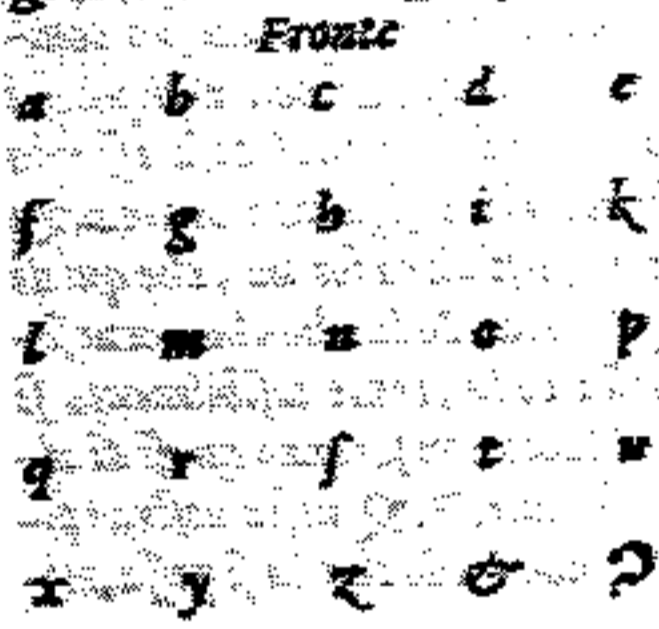 Fronic
a b c d e
f g h i k
l m n o p
q r ſ t u
x y z & ?